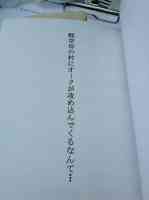 軽空母の村にオークが攻め込んでくるなんて…